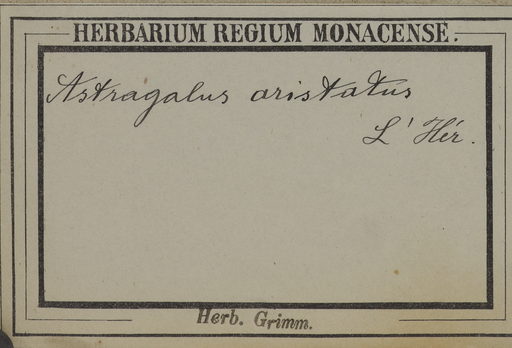 HERBARIUM REGIUM MONACENSE.
Astragalus aristatus
L'Hér.
Herb. Grimm.